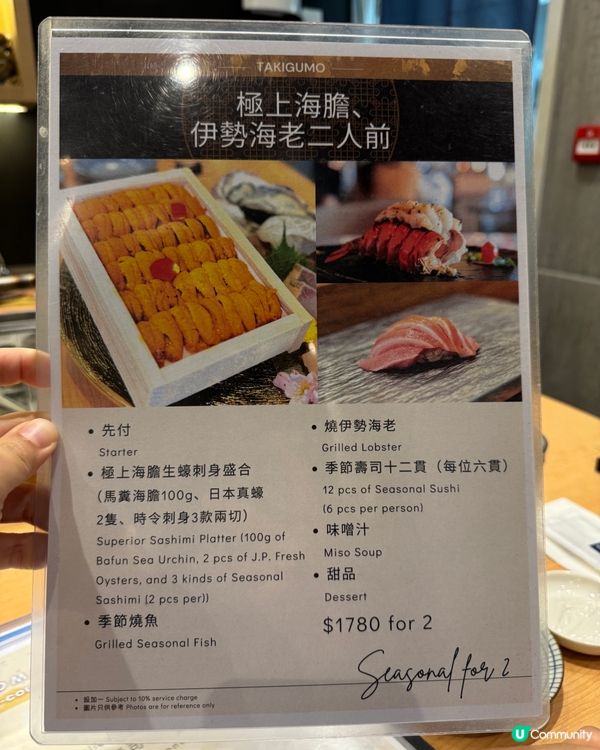 TAKIGUMO
極上海膽、
伊勢海老二人前
• 先付
Starter
• 極上海膽生蠔刺身盛合
(馬糞海膽100g、日本真蠔
2隻、時令刺身3款兩切)
Superior Sashimi Platter (100g of
Bafun Sea Urchin, 2 pcs of J.P. Fresh
Oysters, and 3 kinds of Seasonal
Sashimi (2 pcs per))
• 季節燒魚
Grilled Seasonal Fish
• 燒伊勢海老
Grilled Lobster
• 季節壽司十二貫(每位六貫)
12 pcs of Seasonal Sushi
(6 pcs per person)
• 味噌汁
Miso Soup
• 甜品
Dessert
$1780 for 2
Seasonal for 2
• 設加一 Subject to 10% service charge
• 圖片只供參考 Photos are for reference only
U Community